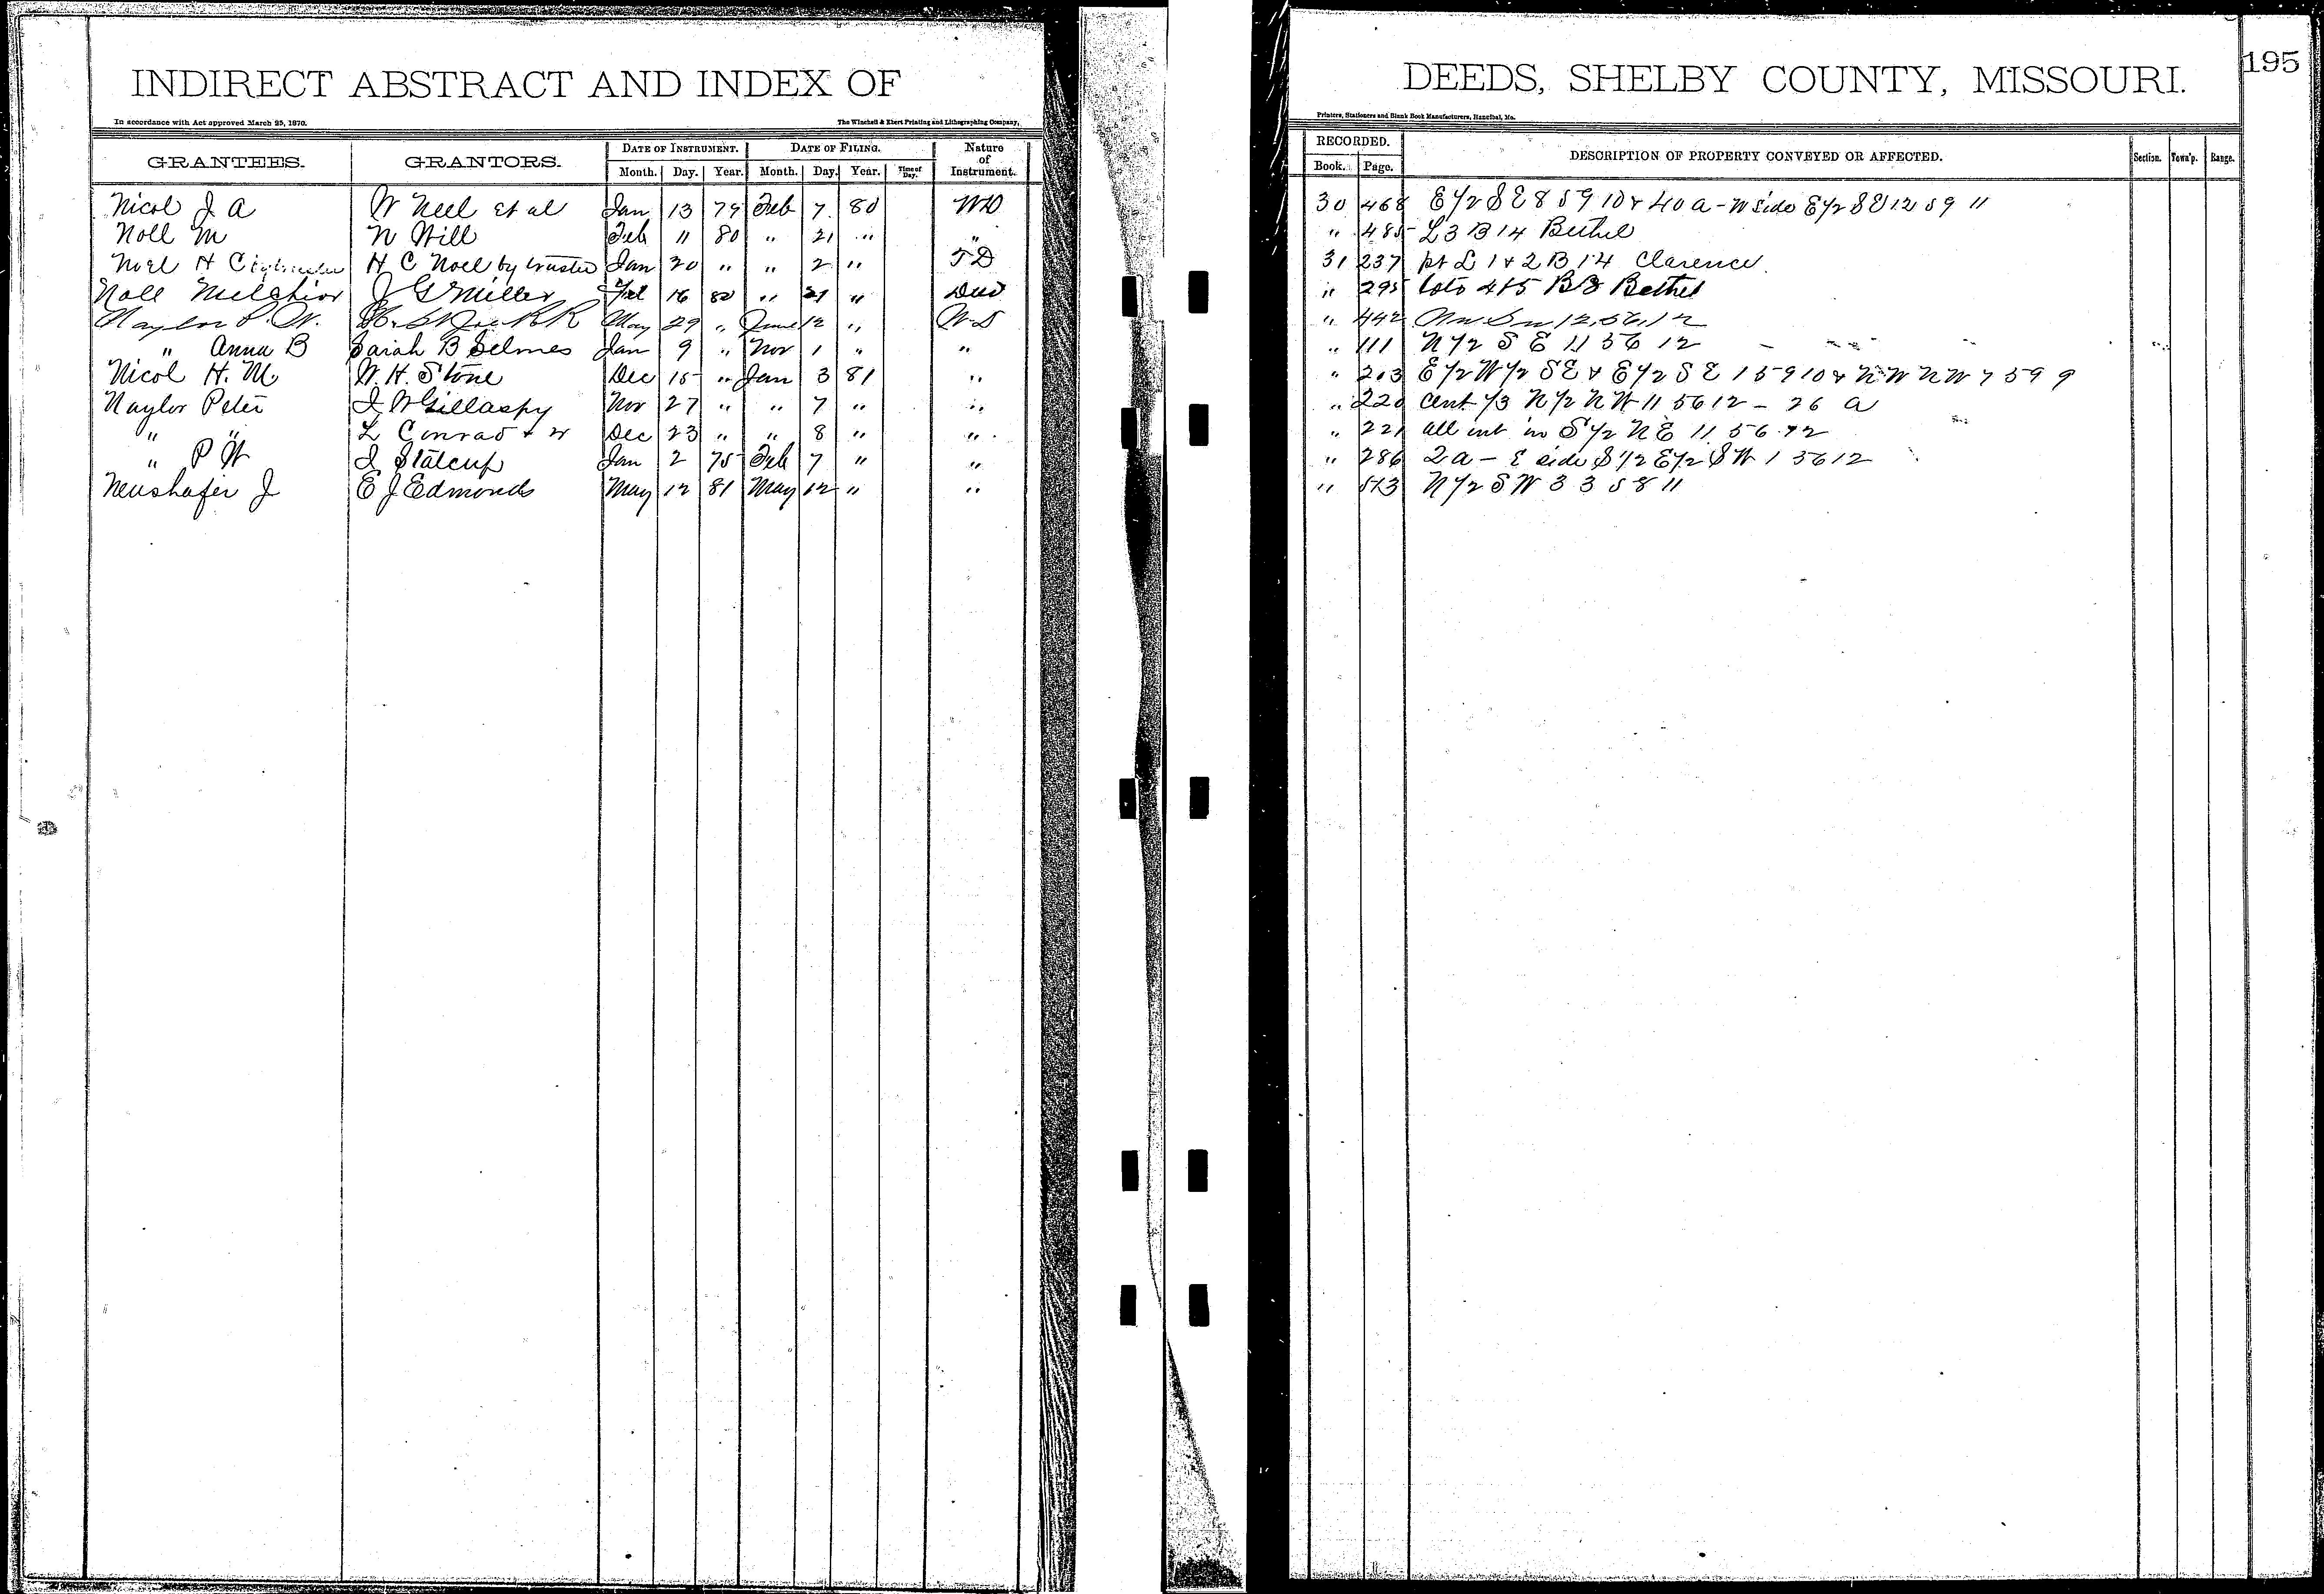 INDIRECT ABSTRACT AND INDEX OF DEEDS, SHELBY COUNTY, MISSOURI. 195
In accordance with Act approved March 25, 1870. The Winchell & Ebert Printing and Lithographing Company, Printers, Stationers and Blank Book Manufacturers, Hannibal, Mo.
GRANTEES. GRANTORS. DATE OF INSTRUMENT. DATE OF FILING. Nature of Instrument. RECORDED. DESCRIPTION OF PROPERTY CONVEYED OR AFFECTED. Section. Town'p. Range.
Month. Day. Year. Month. Day. Year. Time of Day. Book. Page.
Nicol J A W Neel et al Jan 13 79 Feb 7 80 WD 30 468 E 1/2 S E 8 59 10 & 40 a - W side E 1/2 S E 12 59 11
Noll M N Will Feb 11 80 " 21 " " " 485 L 3 B 14 Bethel
Noel H C H C Noel by trustee Jan 20 " " 2 " T D 31 237 pt L 1 & 2 B 14 Clarence
Noll Melchior J G Miller Feb 16 80 " 21 " Deed " 295 lots 4 & 5 B 8 Bethel
Naylor P. W. May 29 " June 12 " W D " 442 12, 56, 12
" Anna B Sarah B Selmes Jan 9 " Nov 1 " " " 111 N 1/2 S E 11 56 12
Nicol H. M. W. H. Stone Dec 15 " Jan 3 81 " " 203 E 1/2 W 1/2 S E & E 1/2 S E 1 59 10 & N W N W 7 59 9
Naylor Peter J W Gillaspy Nov 27 " " 7 " " " 220 cent 1/3 N 1/2 N W 11 56 12 - 26 a
" " L Conrad & w Dec 23 " " 8 " " " 221 all int in S 1/2 N E 11 56 12
" P W J Stalcup Jan 2 75 Feb 7 " " " 286 2 a - E side S 1/2 E 1/2 S W 1 56 12
Neushafer J E J Edmonds May 12 81 May 12 " " " 513 N 1/2 S W 33 58 11